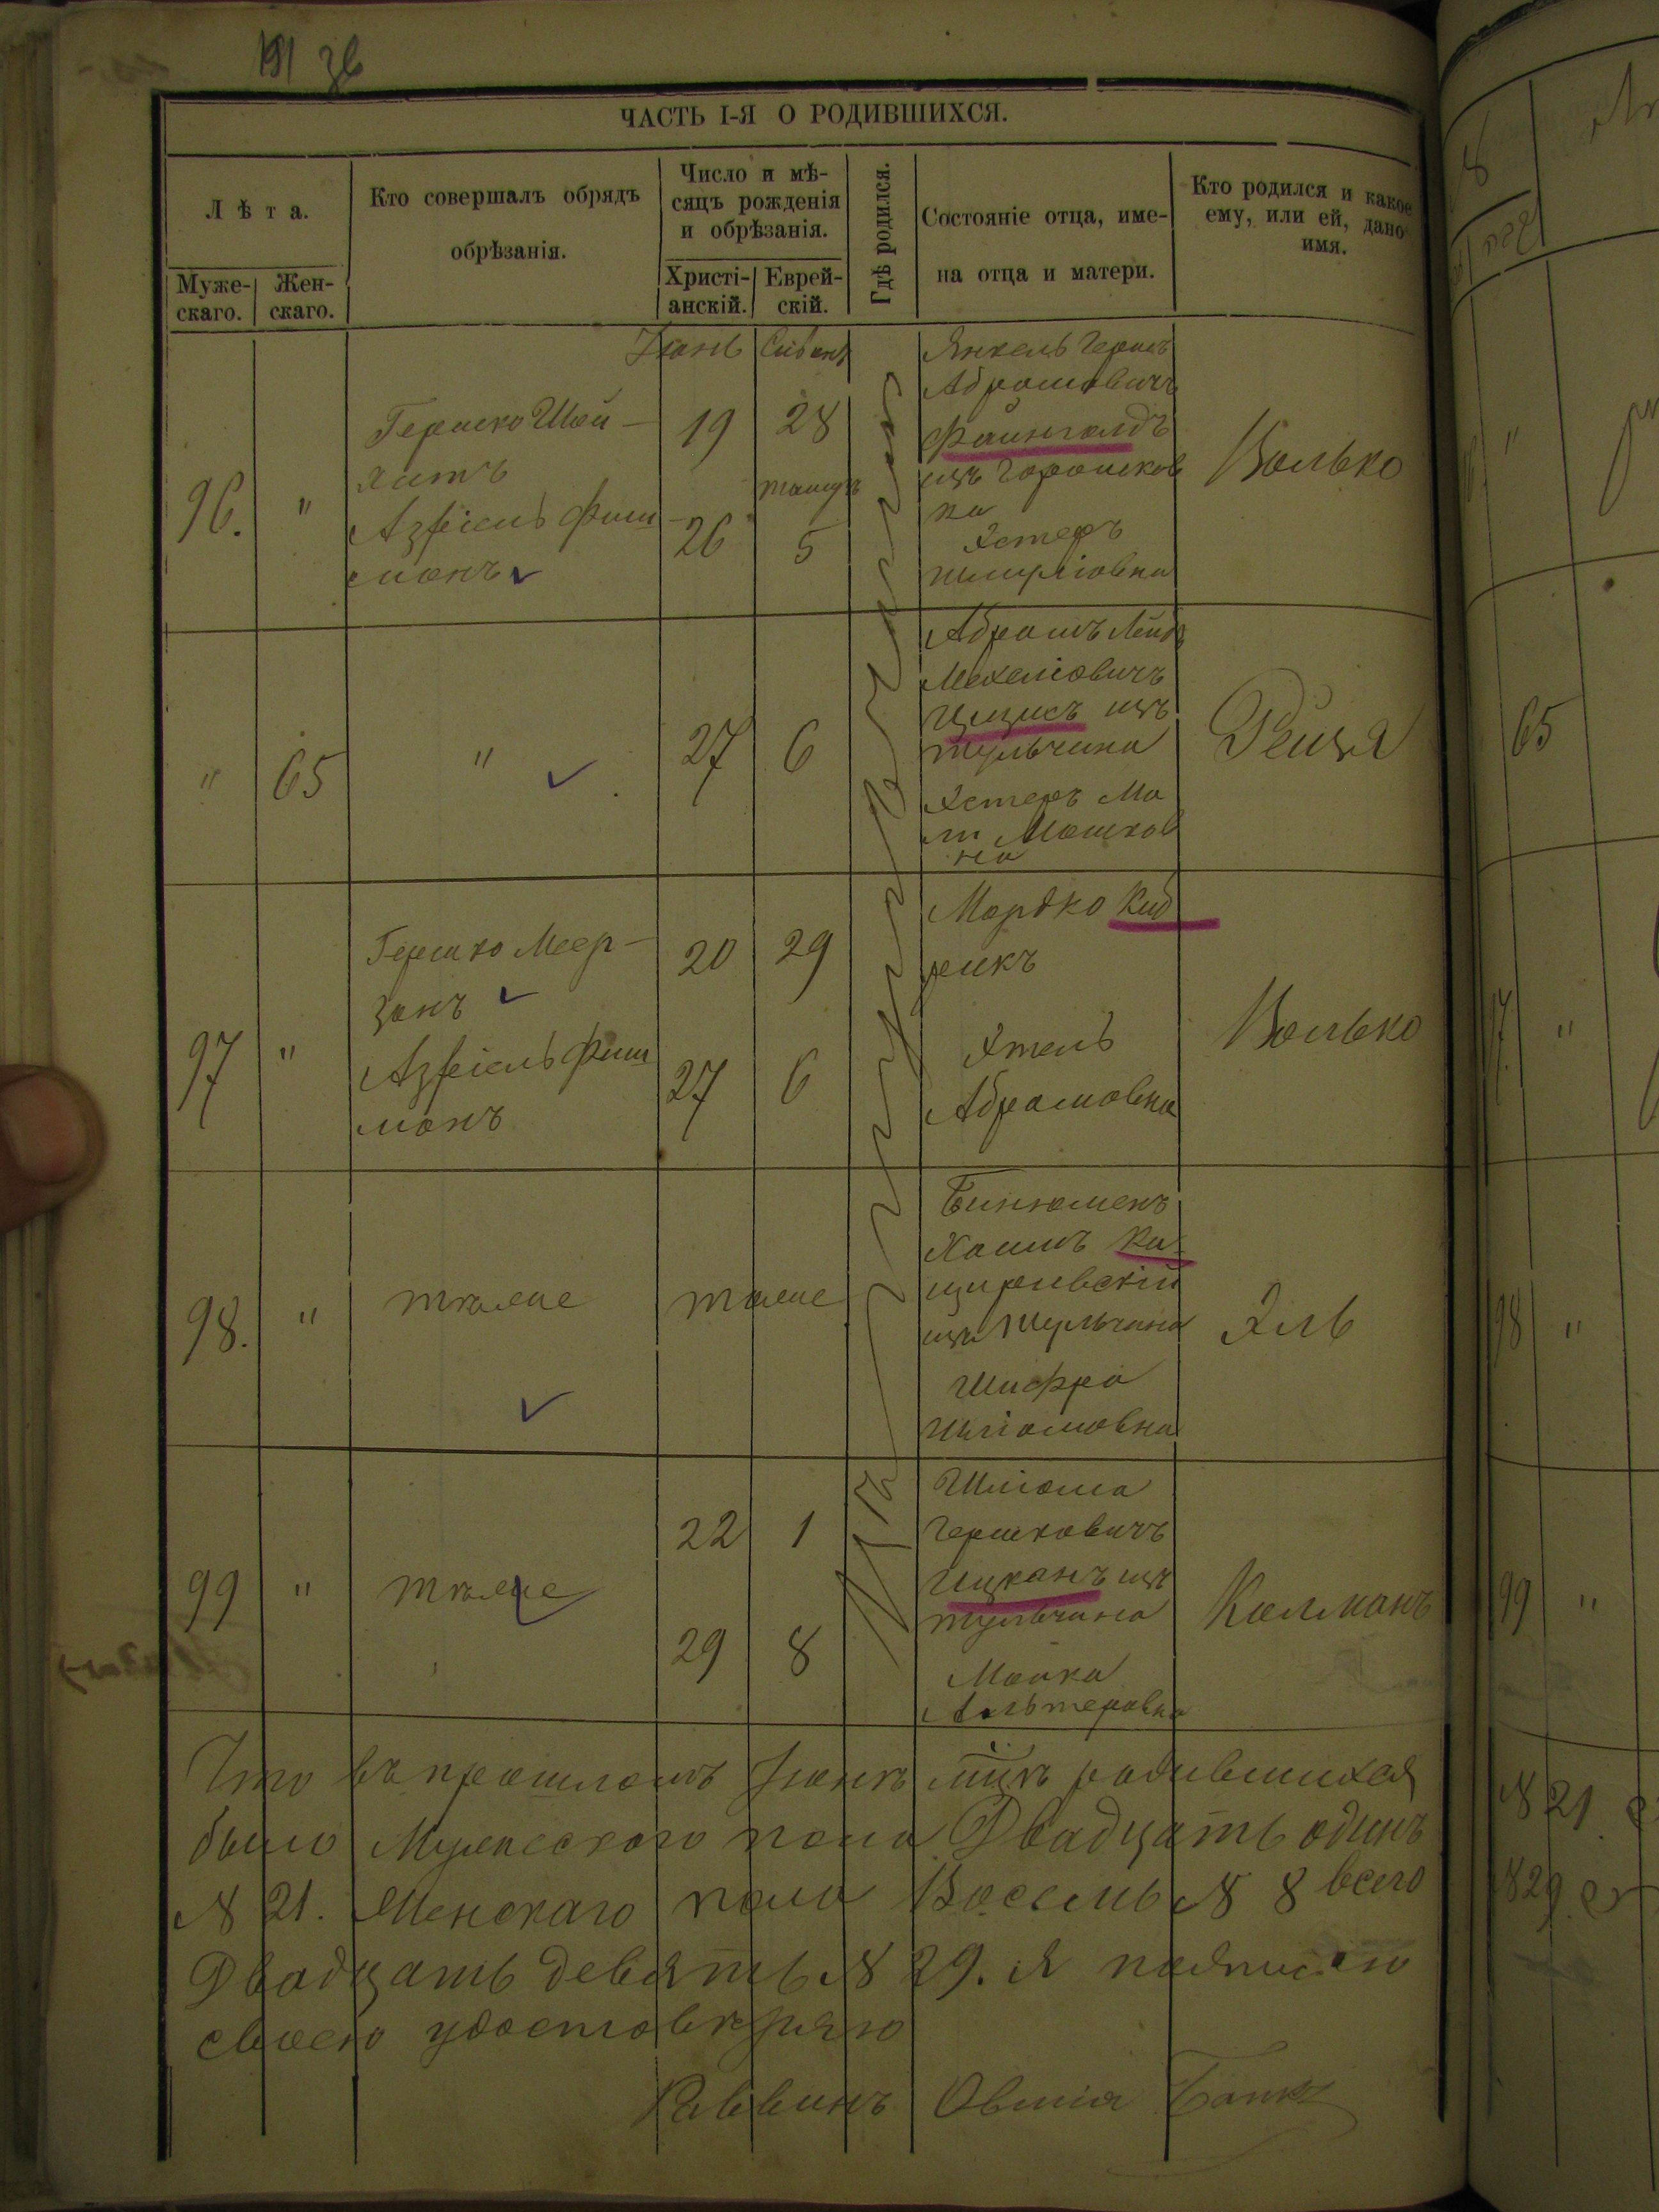 191 зв
ЧАСТЬ I-Я О РОДИВШИХСЯ.
Лѣта.
Муже-
скаго.
Жен-
скаго.
Кто совершалъ обрядъ
обрѣзанія.
Число и мѣ-
сяцъ рожденія
и обрѣзанія.
Христі-
анскій.
Еврей-
скій.
Гдѣ родился.
Состояніе отца, име-
на отца и матери.
Кто родился и какое
ему, или ей, дано
имя.
Іюнь
Сивонъ
96.
"
Гершко Шой-
хитъ
Азріель Фиш
монъ
19
28
тамузъ
26
5
Янкель Гершъ
Абромовичъ
Файнголдъ
изъ Горошков
ка
Эстеръ
Шмулiовна
Волько
"
65
"
27
6
Абромъ Лейбъ
Мехеліовичъ
Цицисъ изъ
Тульчина
Эстеръ Ма
ля Мошков
на
Рейзя
97
"
Гершко Меер-
зонъ
Азріель Фиш
монъ
20
29
27
6
Мордко Киб
рикъ
Этель
Абрамовна
Волько
98.
"
тѣже
тоже
Бинюменъ
Хаимъ Ка-
циревскій
изъ Тульчина
Шифра
Шліомовна
Эль
99
"
тѣже
22
1
29
8
Шліома
Гершковичъ
Ицканъ изъ
Тульчина
Малка
Альтеровна
Колманъ
Что въ прошломъ Іюнѣ мцѣ родившихся
было Мужескаго пола Двадцать одинъ
№ 21. Женскаго пола Восемь № 8 всего
Двадцать девять № 29. я подписью
своею удостовѣряю
Раввинъ Овшія
65
98
"
99
"
№ 21
№ 29